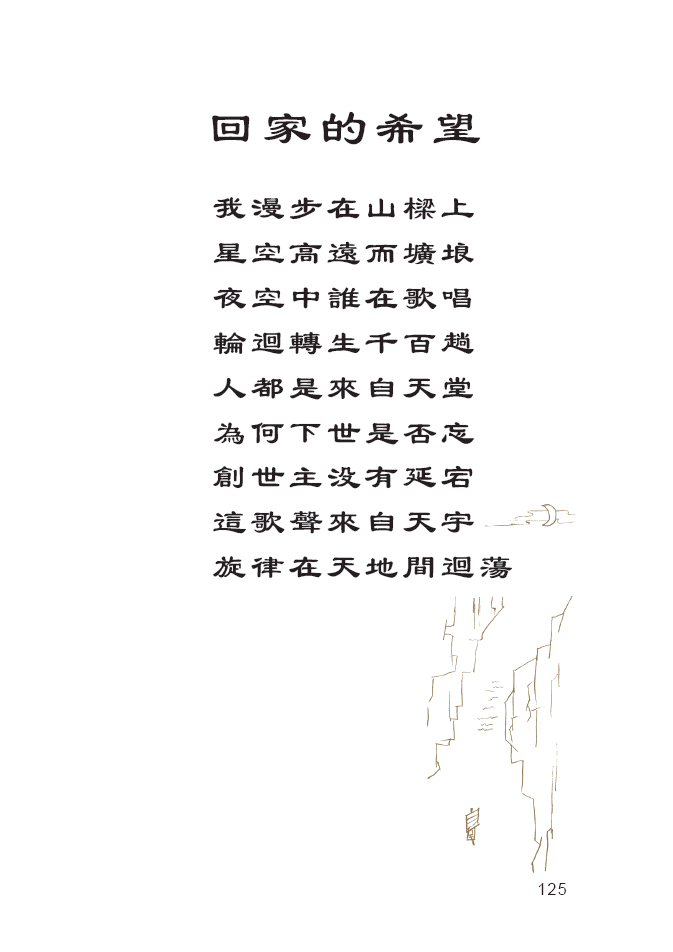 回家的希望
我漫步在山樑上
星空高遠而壙埌
夜空中誰在歌唱
輪迴轉生千百趟
人都是來自天堂
為何下世是否忘
創世主没有延宕
這歌聲來自天宇
旋律在天地間迴蕩
125